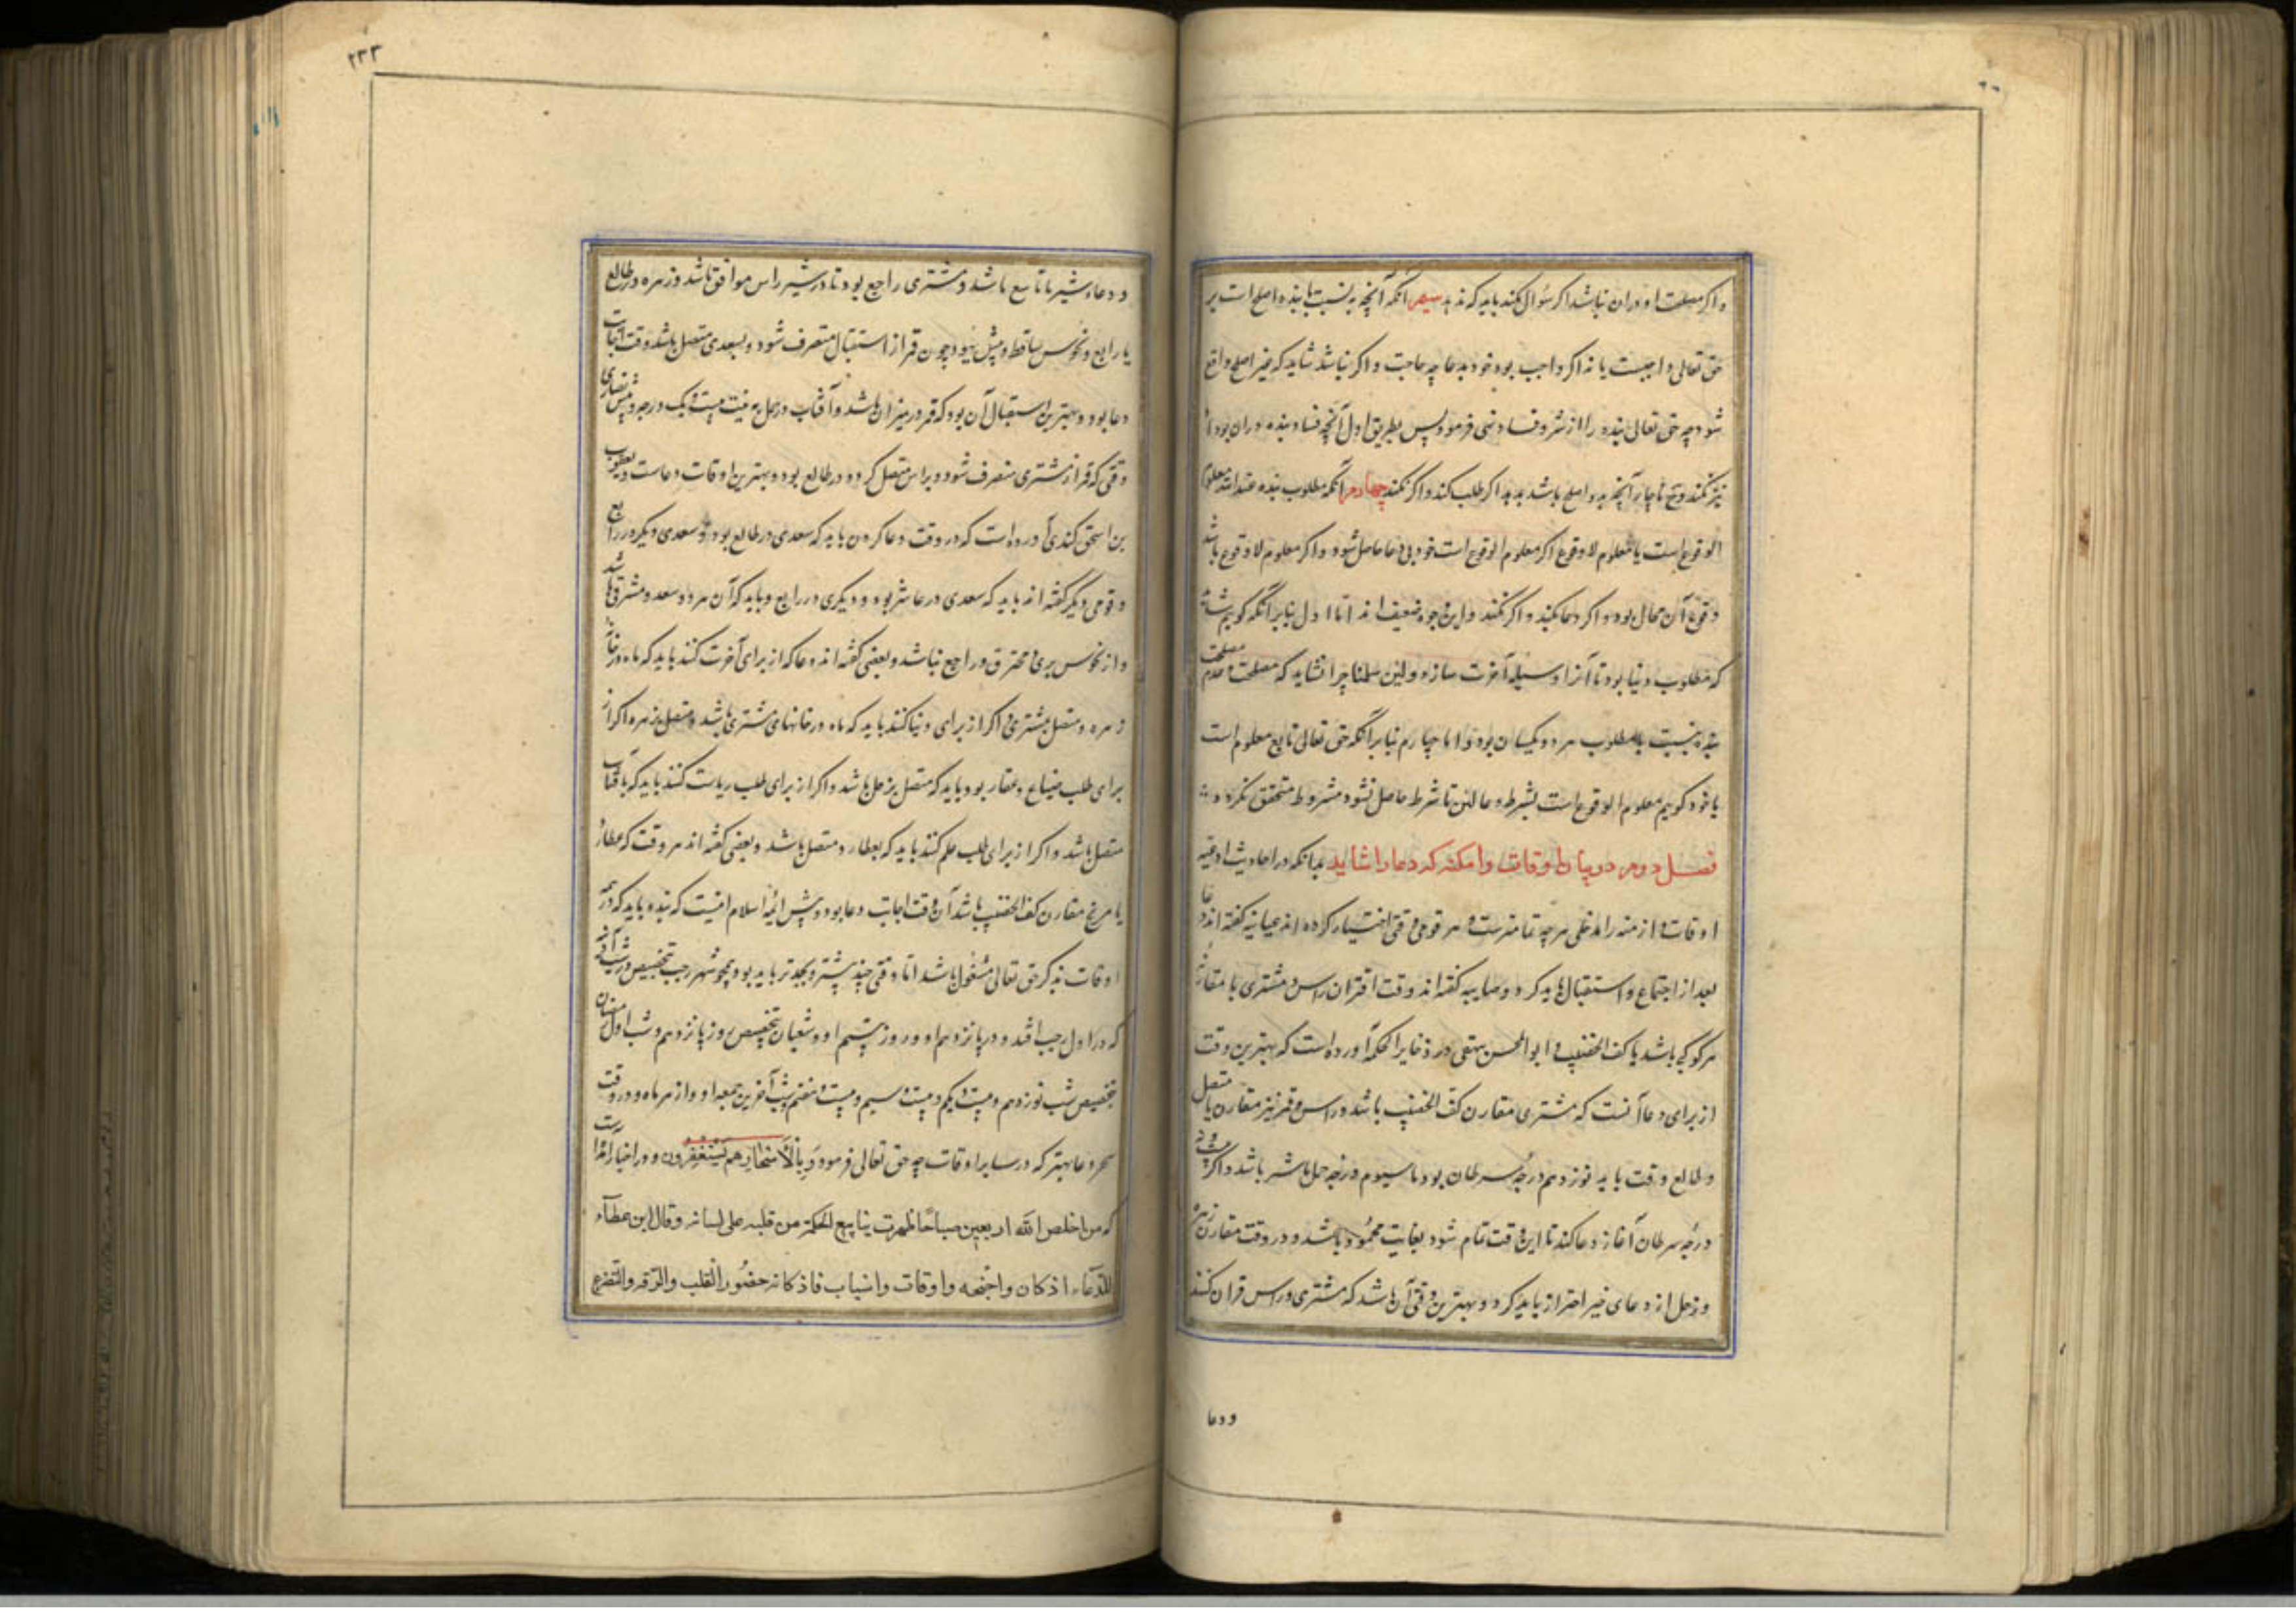 و اکر مصلحت او دران نباشد اکر سؤال کند باید که ندهد سیم آنکه آنچه به نسبت با بنده اصلح است بر
حق تعالی واجبست یا نه اکر واجب بود خود بدعا چه حاجت و اکر نباشد شاید که غیر اصلح واقع
شود چه حق تعالی بنده را از شر و فساد نهی فرمود پس بطریق اول آنچه فساد بنده دران بود او
نیز نکند و ناچار آنچه بدو اصلح باشد بدهد اکر طلب کند و اکر نکند چهارم آنکه مطلوب بنده عند الله معلوم
الوقوع است یا معلوم لاوقوع اکر معلوم الوقوع است خود بی دعا حاصل شود و اکر معلوم لاوقوع باشد
وقوع آن محال بود و اکر دعا کند و اکر نکند و این وجوه ضعیف اند اما اول بنابر آنکه کوییم شاید
که مطلوب دنیا بود تا آنرا وسیله آخرت سازد ولئن سلمنا چرا نشاید که مصلحت و عدم مصلحت
بنده بنسبت با مطلوب هر دو یکسان بود و اما چهارم بنابر آنکه حق تعالی تابع معلوم است
یا خود کوییم معلوم الوقوع است بشرط دعا لئن تا شرط حاصل نشود مشروط متحقق نکردد
فصل دوم در بیان اوقات و امکنه که دعا را شاید بدانکه در احادیث ادعیه
اوقات و ازمنه را مدخلی هرچه تمامترست و هر قومی وقتی اختیار کرده اند عیانیه کفته اند دعا
بعد از اجتماع و استقبال باید کرد و صابیه کفته اند وقت اقتران راس و مشتری با مقارنه
هر کوکبی باشد با کف الخضیب و ابوالحسن بیهقی در ذخایر الحکمة آورده است که بهترین وقت
از برای دعا آنست که مشتری مقارن کف الخضیب باشد و راس و قمر نیز مقارن یا متصل
و طالع وقت باید نوزدهم درجه سرطان بود تا سیوم درجه حمل عاشر باشد و اکر
درجه سرطان آغاز دعا کند تا این وقت تمام شود بغایت محمود باشد و در وقت مقارن زهره
و زحل از دعای خیر احتراز باید کرد و بهترین وقتی آن باشد که مشتری و راس قران کنند
و دعا
۲۳۳
و دعاء شیر با تاسع باشد و مشتری راجع بود تا در شیر راس موافق باشد و زهره در طالع
یا رابع و نحوس ساقط و پیش هنود چون قمر از استقبال منصرف شود و بسعدی متصل باشد وقت اجابت
دعا بود و بهترین استقبال آن بود که قمر در میزان باشد و آفتاب در حمل به بیست و یک درجه و پیش نصاری
وقتی که قمر از مشتری منصرف شود و براس متصل کردد و در طالع بود و بهترین اوقات دعاست و یعقوب
بن اسحق کندی آورده است که در وقت دعا کردن باید که سعدی در طالع بود و سعدی دیگر در رابع
و قومی دیگر کفته اند باید که سعدی در عاشر بود و دیکری در رابع و باید که آن هر دو سعد و مشرقی باشد
و از نحوس بری و محترق و راجع نباشد و بعضی کفته اند دعا که از برای آخرت کنند باید که ماه در خانهاء
زهره و متصل بمشتری و اکر از برای دنیا کنند باید که ماه در خانهای مشتری باشد و متصل بزهره اکر از
برای طلب ضیاع و عقار بود باید که متصل بزحل باشد و اکر از برای طلب ریاست کنند باید که بآفتاب
متصل باشد و اکر از برای طلب علم کنند باید که بعطارد متصل باشد و بعضی کفته اند هر وقت که عطارد
یا مریخ مقارن کف الخضیب باشد آن وقت اجابت دعا بود و پیش ائمه اسلام اینست که بنده باید که در همه
اوقات بذکر حق تعالی مشغول باشد اما وقتی چند بیشتر و بجدتر باید بود همچو شهر رجب بتخصیص در شب آدینه
که در اول رجب افتد و در پانزدهم او و در روز بیستم او و شعبان بتخصیص روز پانزدهم و شب اول رمضان
بتخصیص شب نوزدهم و بیست و یکم و بیست و سیم و بیست و هفتم شب آخرین جمعه او و از هر ماه و در وقت
سحر دعا بهتر که در سایر اوقات چه حق تعالی فرمود وَبِالْأَسْحَارِ هُمْ يَسْتَغْفِرُونَ و در اخبار آمده است
که من اخلص الله اربعین صباحًا ظهرت ینابیع الحکمة من قلبه علی لسانه و قال ابن عطاء
للدعاء ارکان و اجنحه و اوقات و اسباب فارکانه حضور القلب و الرقه و التضرع